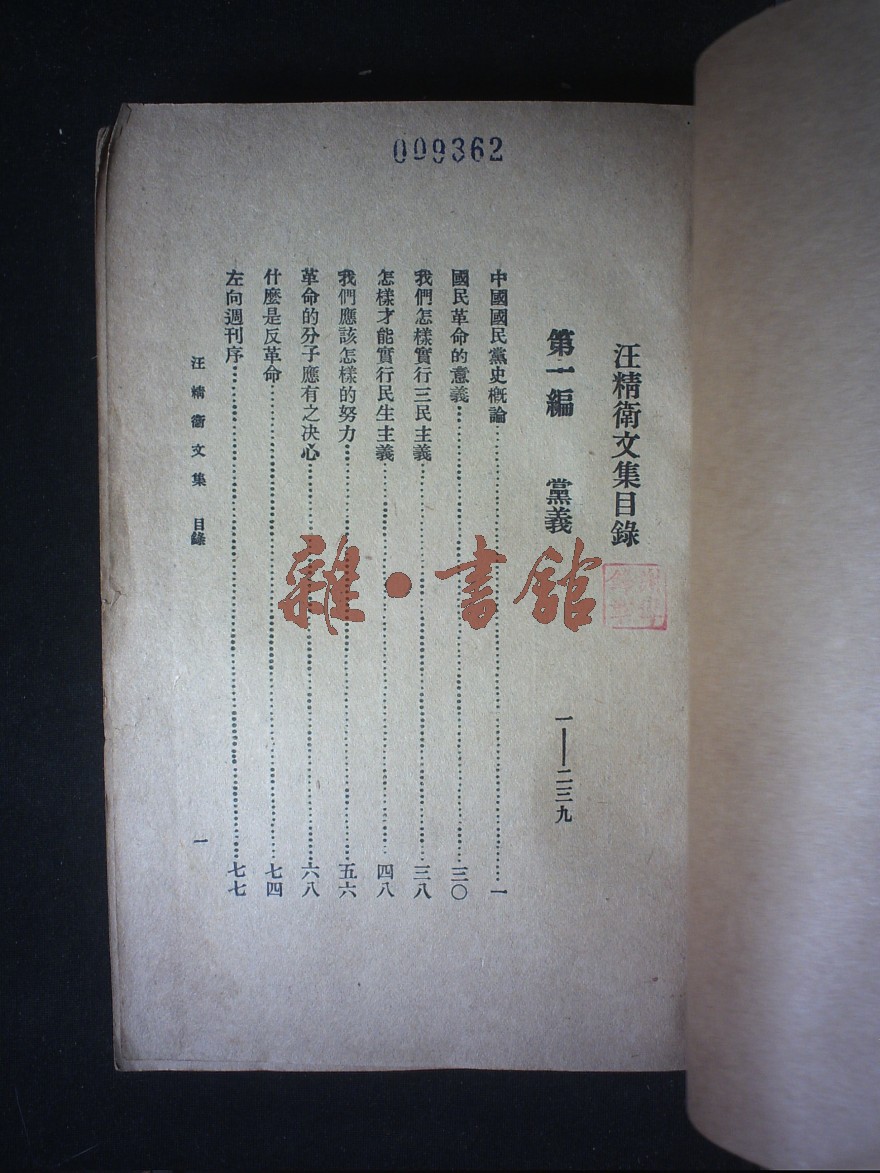 009362
汪精衛文集目錄
第一編 黨義 一——二三九
中國國民黨史概論……一
國民革命的意義……三〇
我們怎樣實行三民主義……三八
怎樣才能實行民生主義……四八
我們應該怎樣的努力……五六
革命的分子應有之決心……六八
什麼是反革命……七四
左向週刊序……七七
汪精衛文集 目錄 一
雜·書館